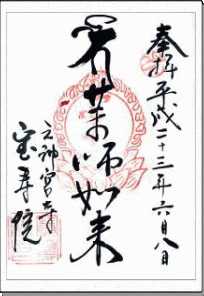 奉拝 平成二十三年六月八日
若薬師如来
元神宮寺
宝寿院